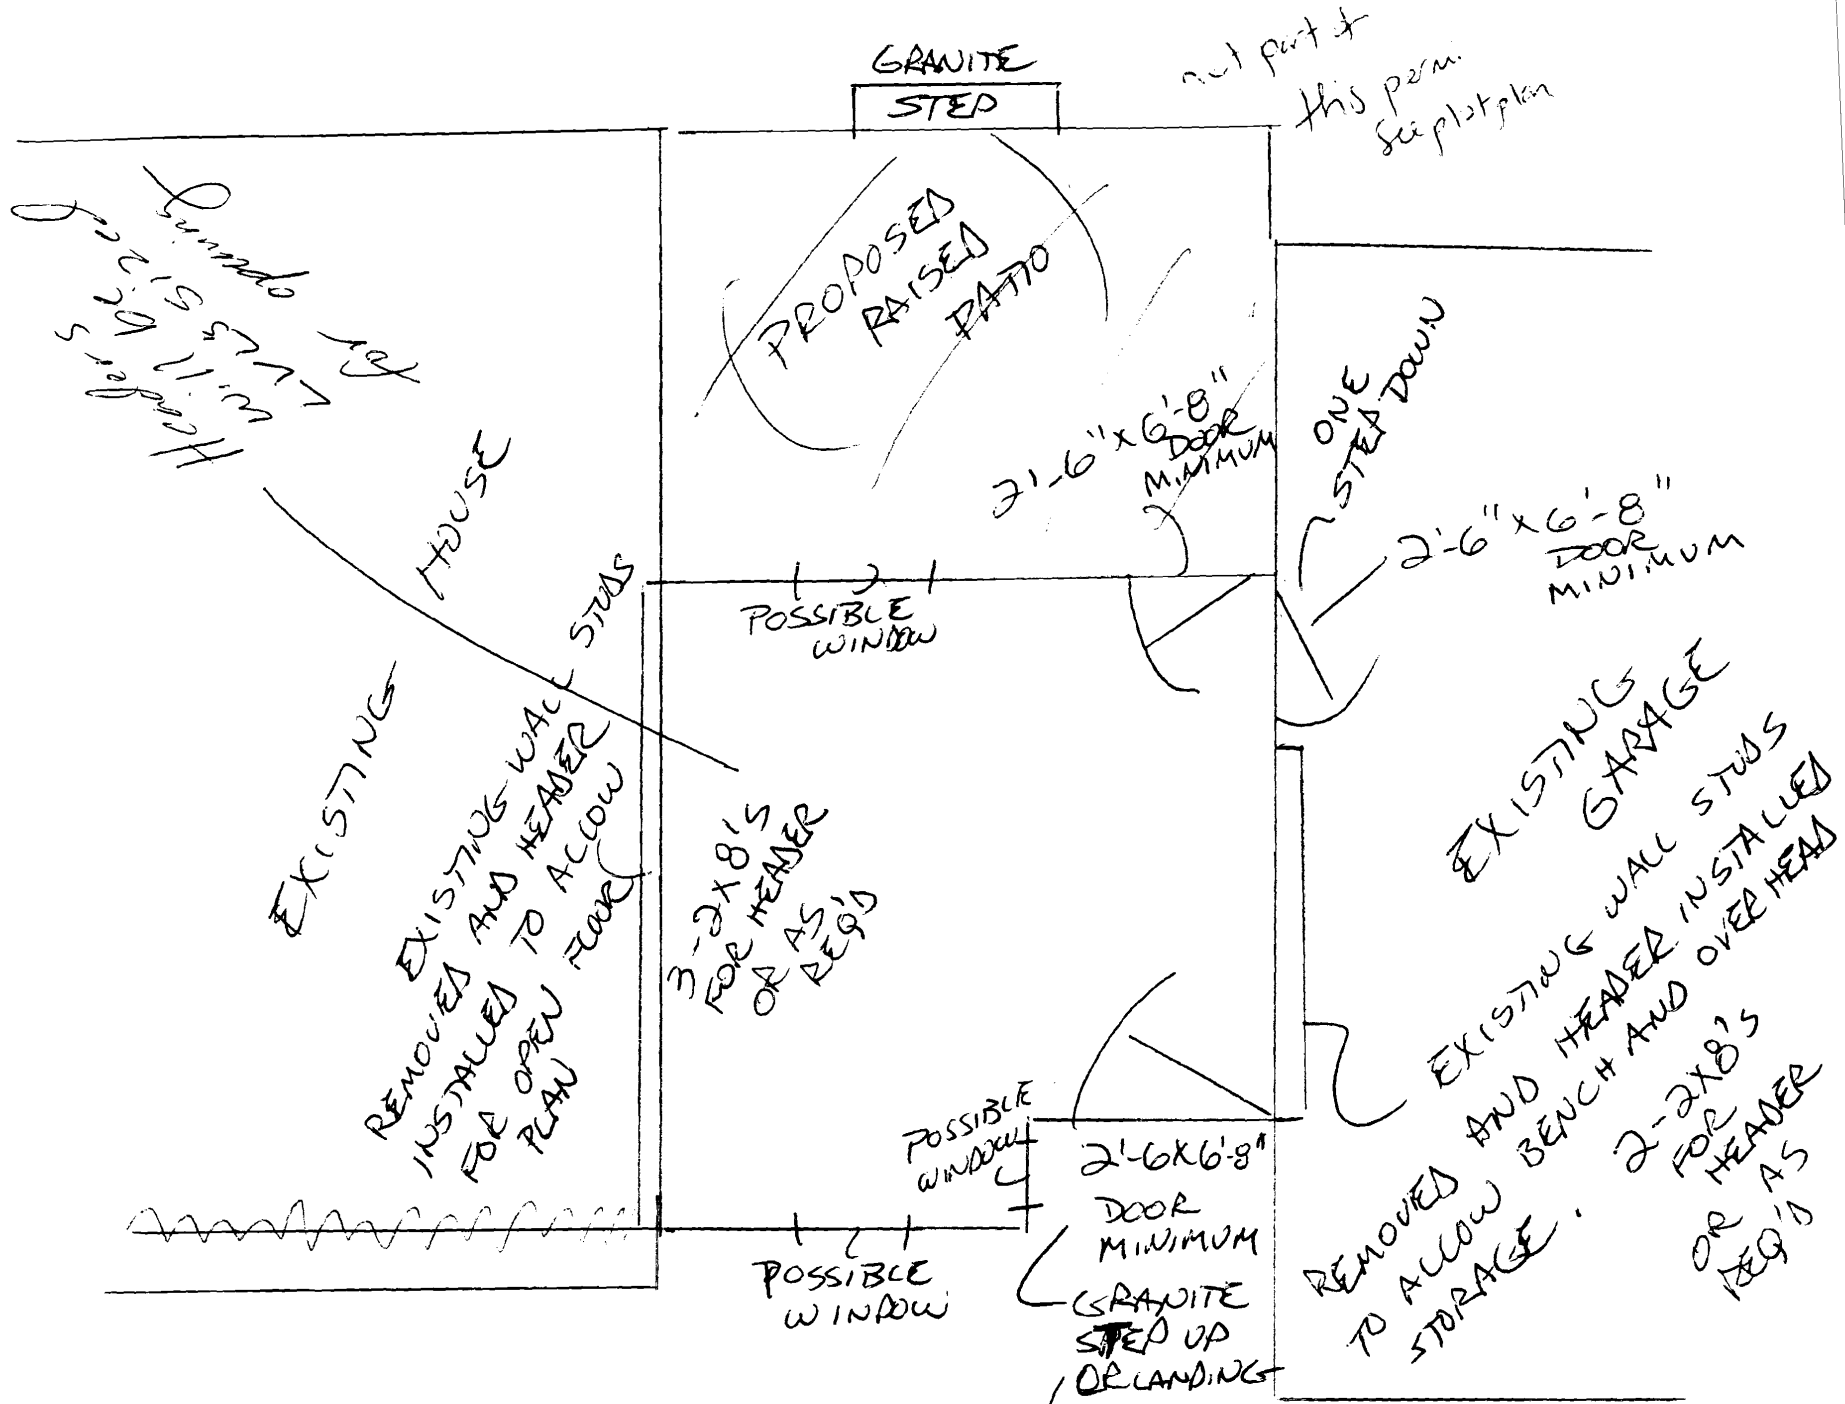 GRANITE
STEP
not part of
this perm.
See plot plan
Headers
will be
LVLs sized
for
opening
PROPOSED
RAISED
PATIO
2'-6" x 6'-8"
DOOR
MINIMUM
ONE
STEP DOWN
2'-6" x 6'-8"
DOOR
MINIMUM
EXISTING HOUSE
POSSIBLE
WINDOW
EXISTING WALL STUDS
REMOVED AND HEADER
INSTALLED TO ALLOW
FOR OPEN FLOOR
PLAN
3-2X8'S
FOR HEADER
OR AS
REQ'D
EXISTING
GARAGE
EXISTING WALL STUDS
REMOVED AND HEADER INSTALLED
TO ALLOW BENCH AND OVERHEAD
STORAGE.
2-2X8'S
FOR
HEADER
OR AS
REQ'D
POSSIBLE
WINDOW
2'-6X6'-8"
DOOR
MINIMUM
POSSIBLE
WINDOW
GRANITE
STEP UP
OR LANDING